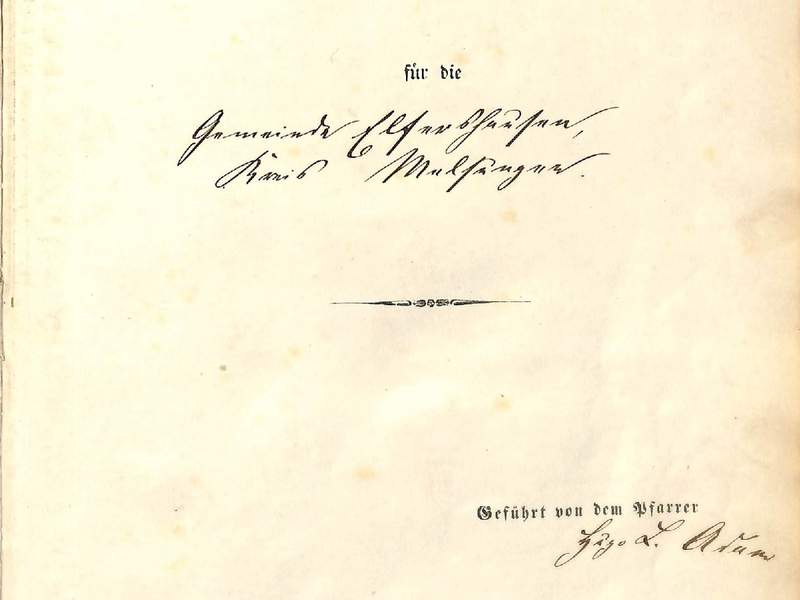 für die
Gemeinde Elfershausen,
Kreis Melsungen.
Geführt von dem Pfarrer
L. Adam